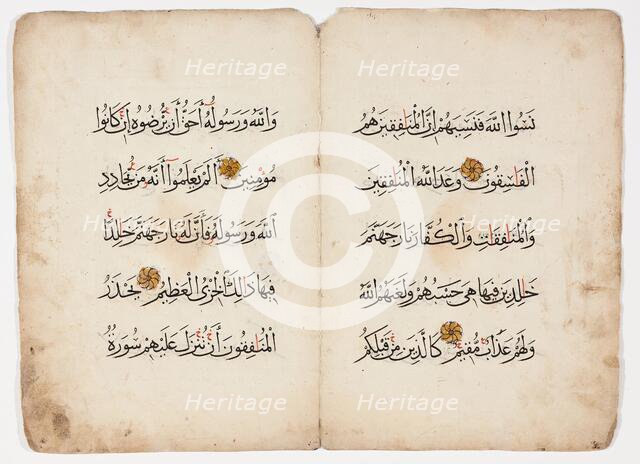 نَسُوا اللَّهَ فَنَسِيَهُمْ إِنَّ الْمُنَافِقِينَ هُمُ
الْفَاسِقُونَ وَعَدَ اللَّهُ الْمُنَافِقِينَ
وَالْمُنَافِقَاتِ وَالْكُفَّارَ نَارَ جَهَنَّمَ
خَالِدِينَ فِيهَا هِيَ حَسْبُهُمْ وَلَعَنَهُمُ اللَّهُ
وَلَهُمْ عَذَابٌ مُقِيمٌ كَالَّذِينَ مِنْ قَبْلِكُمْ
وَاللَّهُ وَرَسُولُهُ أَحَقُّ أَنْ يُرْضُوهُ إِنْ كَانُوا
مُؤْمِنِينَ أَلَمْ يَعْلَمُوا أَنَّهُ مَنْ يُحَادِدِ
اللَّهَ وَرَسُولَهُ فَأَنَّ لَهُ نَارَ جَهَنَّمَ خَالِدًا
فِيهَا ذَلِكَ الْخِزْيُ الْعَظِيمُ يَحْذَرُ
الْمُنَافِقُونَ أَنْ تُنَزَّلَ عَلَيْهِمْ سُورَةٌ
Heritage Heritage
Heritage Heritage
Heritage Heritage